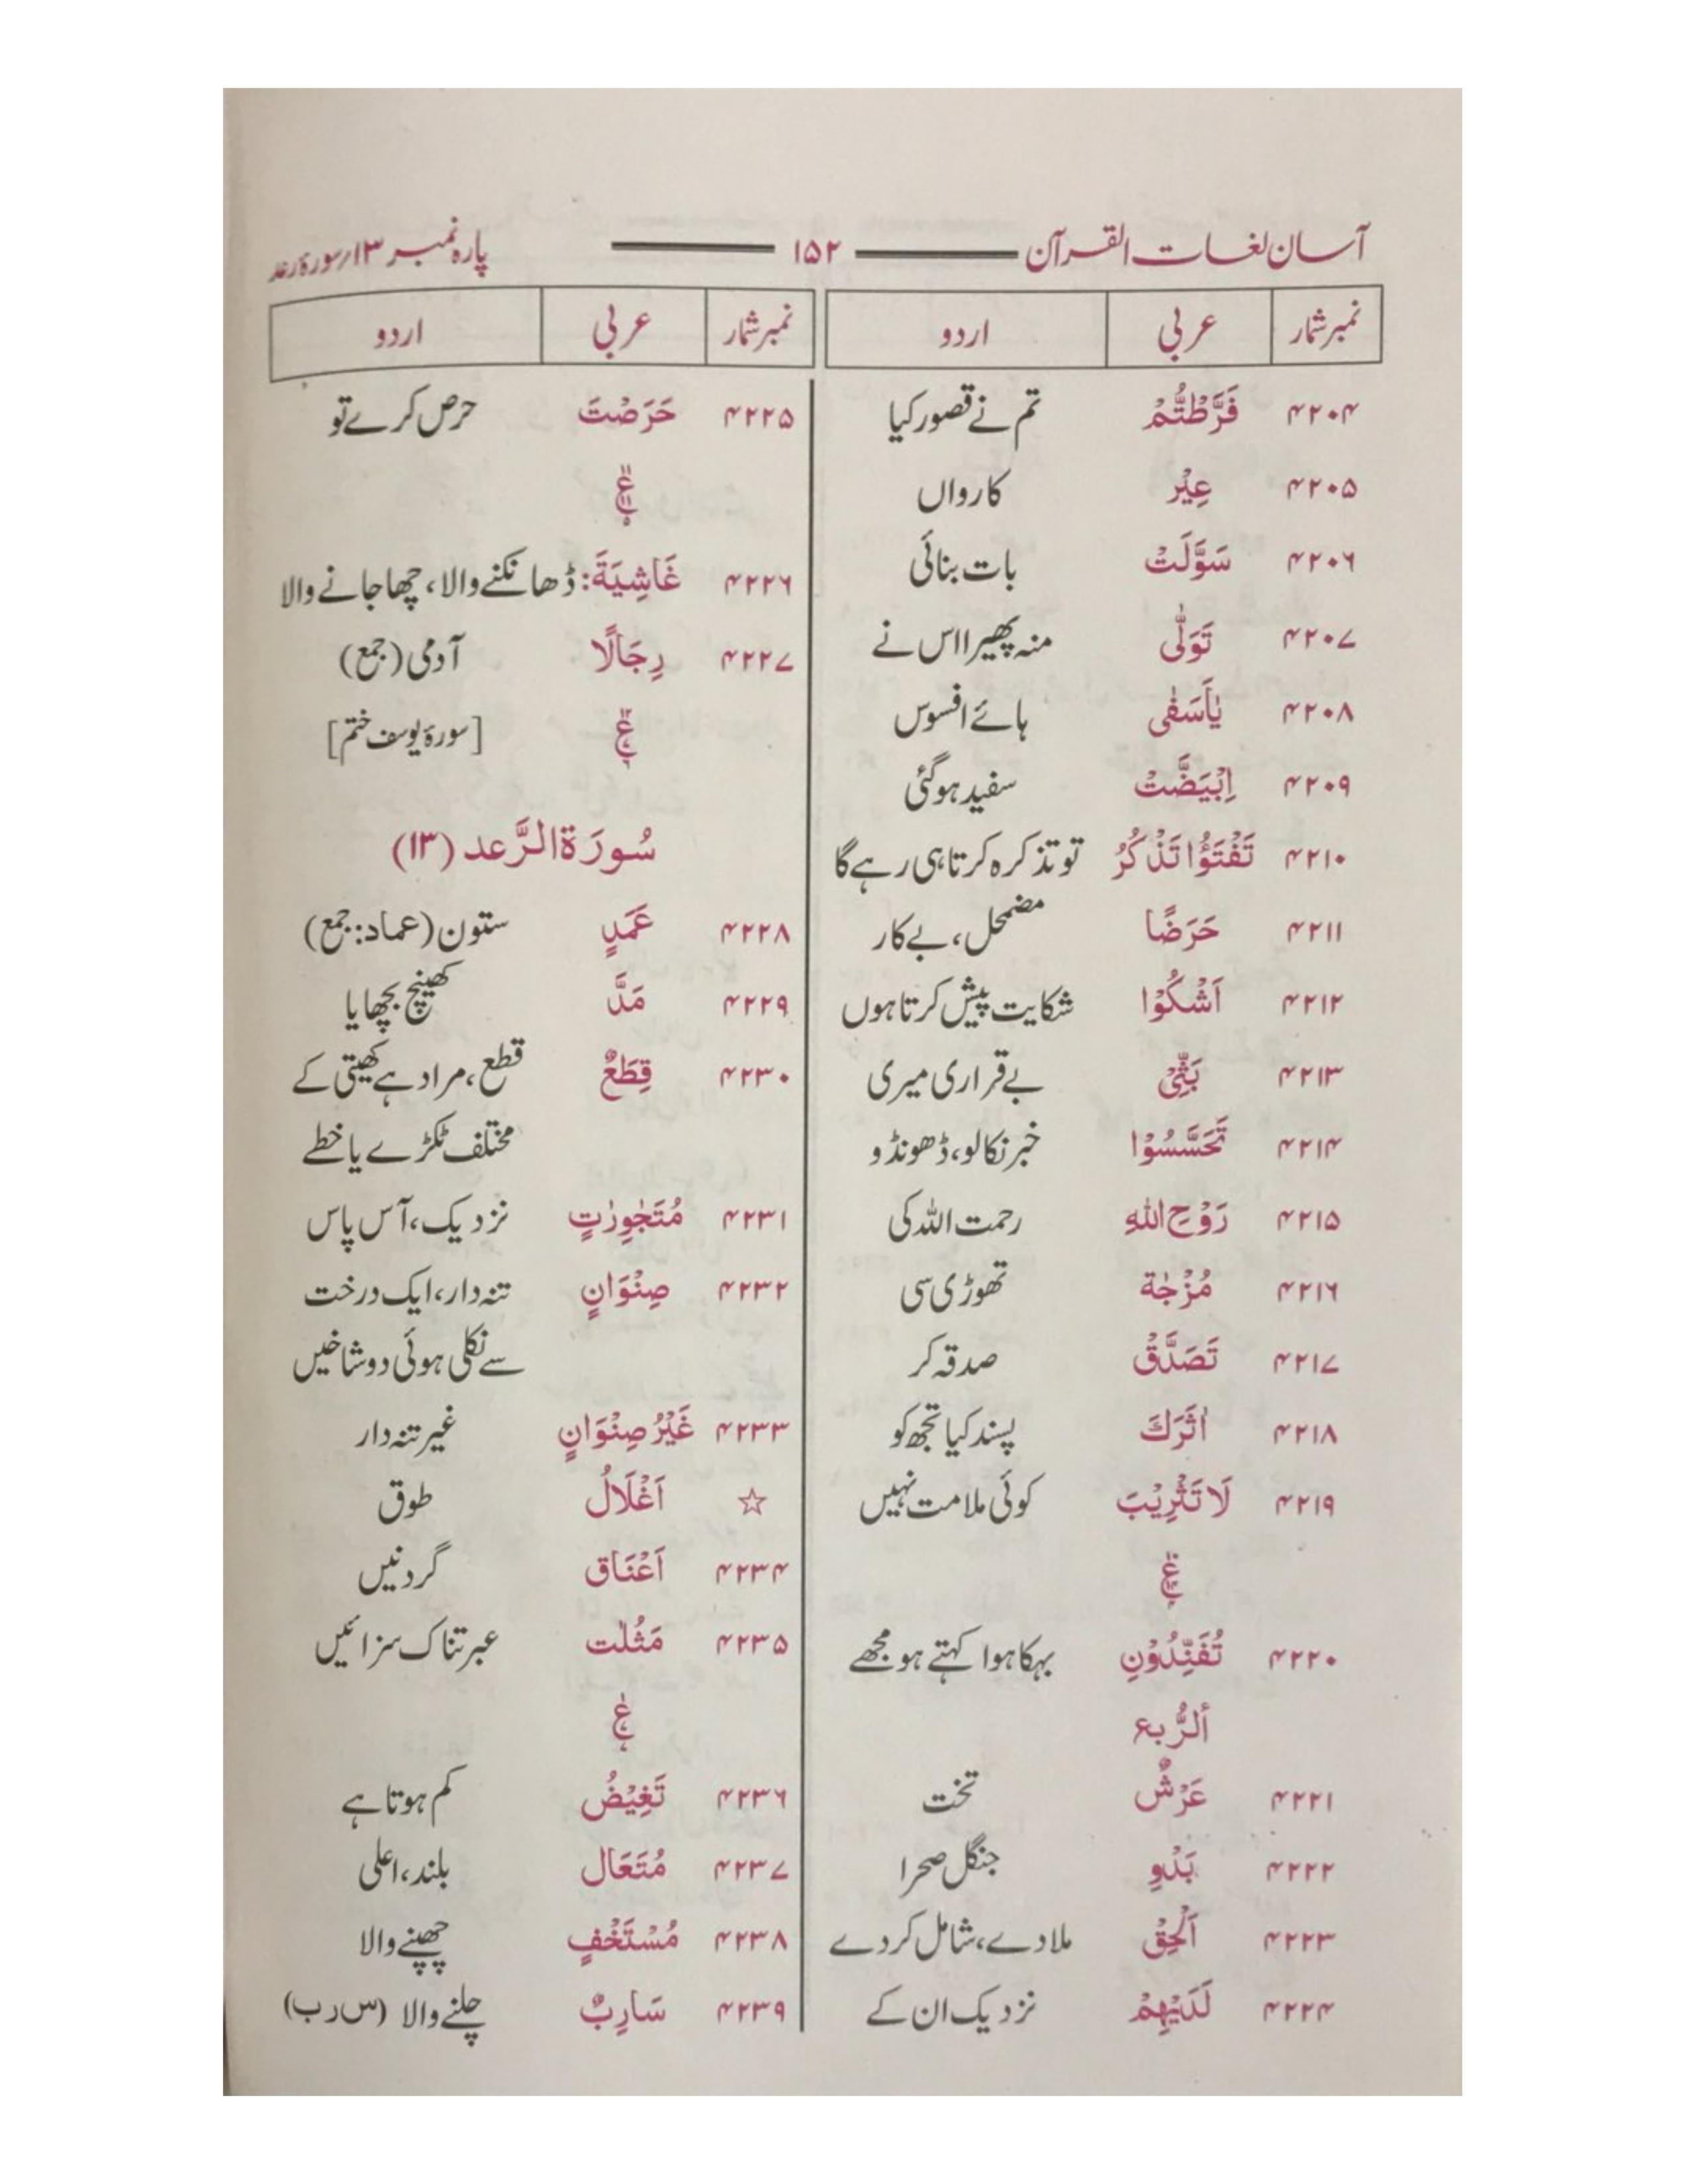 آسان لغات القرآن ۱۵۲ پارہ نمبر ۱۳/سورۂ رعد
نمبر شمار عربی اردو
۴۲۰۴ فَرَّطْتُّمْ تم نے قصور کیا
۴۲۰۵ عِيْر کارواں
۴۲۰۶ سَوَّلَتْ بات بنائی
۴۲۰۷ تَوَلّٰى منہ پھیرا اس نے
۴۲۰۸ يٰأَسَفٰى ہائے افسوس
۴۲۰۹ اِبْيَضَّتْ سفید ہوگئی
۴۲۱۰ تَفْتَؤُا تَذْكُرُ تو تذکرہ کرتا ہی رہے گا
۴۲۱۱ حَرَضًا مضمحل، بے کار
۴۲۱۲ اَشْكُوْا شکایت پیش کرتا ہوں
۴۲۱۳ بَثِّيْ بے قراری میری
۴۲۱۴ تَحَسَّسُوْا خبر نکالو، ڈھونڈو
۴۲۱۵ رَوْحِ اللّٰهِ رحمت اللہ کی
۴۲۱۶ مُزْجٰة تھوڑی سی
۴۲۱۷ تَصَدَّقْ صدقہ کر
۴۲۱۸ اٰثَرَكَ پسند کیا تجھ کو
۴۲۱۹ لَا تَثْرِيْبَ کوئی ملامت نہیں
ع
۴۲۲۰ تُفَنِّدُوْنِ بہکا ہوا کہتے ہو مجھے
ألرُّبع
۴۲۲۱ عَرْشٌ تخت
۴۲۲۲ بَدْوِ جنگل صحرا
۴۲۲۳ اَلْحِقْ ملادے، شامل کردے
۴۲۲۴ لَدَيْهِمْ نزدیک ان کے
نمبر شمار عربی اردو
۴۲۲۵ حَرَصْتَ حرص کرے تو
ع
۴۲۲۶ غَاشِيَةَ: ڈھانکنے والا، چھا جانے والا
۴۲۲۷ رِجَالًا آدمی (جمع)
ع [سورۂ یوسف ختم]
سُورَۃ الرَّعد (۱۳)
۴۲۲۸ عَمَدٍ ستون (عماد: جمع)
۴۲۲۹ مَدَّ کھینچ بچھایا
۴۲۳۰ قِطَعٌ قطع، مراد ہے کھیتی کے
مختلف ٹکڑے یا خطے
۴۲۳۱ مُتَجٰوِرٰتٍ نزدیک، آس پاس
۴۲۳۲ صِنْوَانٍ تنہ دار، ایک درخت
سے نکلی ہوئی دو شاخیں
۴۲۳۳ غَيْرُ صِنْوَانٍ غیر تنہ دار
☆ اَغْلَالُ طوق
۴۲۳۴ اَعْنَاق گردنیں
۴۲۳۵ مَثُلٰت عبرتناک سزائیں
ع
۴۲۳۶ تَغِيْضُ کم ہوتا ہے
۴۲۳۷ مُتَعَال بلند، اعلی
۴۲۳۸ مُسْتَخْفٍ چھپنے والا
۴۲۳۹ سَارِبٌ چلنے والا (س ر ب)